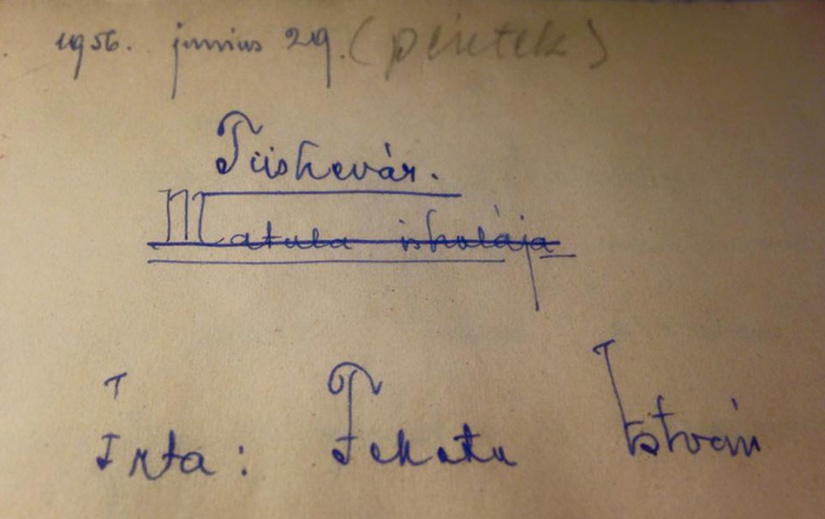 1956. junius 29. (péntek)
Tüskevár.
Matula iskolája
Írta: Fekete István